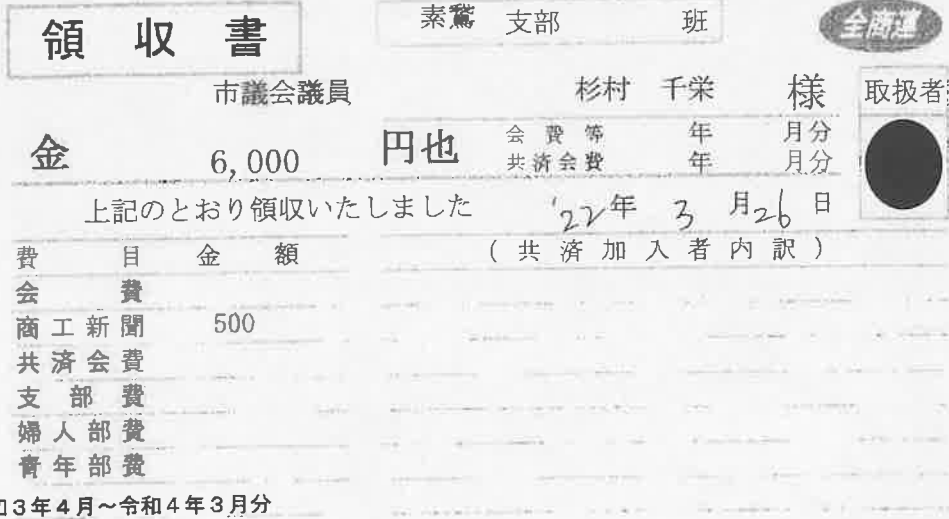 領収書
素鵞 支部 班
全商連
市議会議員 杉村 千栄 様
取扱者
金 6,000 円也
会費等 年 月分
共済会費 年 月分
上記のとおり領収いたしました '22年 3月26日
費目 金額 (共済加入者内訳)
会費
商工新聞 500
共済会費
支部費
婦人部費
青年部費
3年4月~令和4年3月分